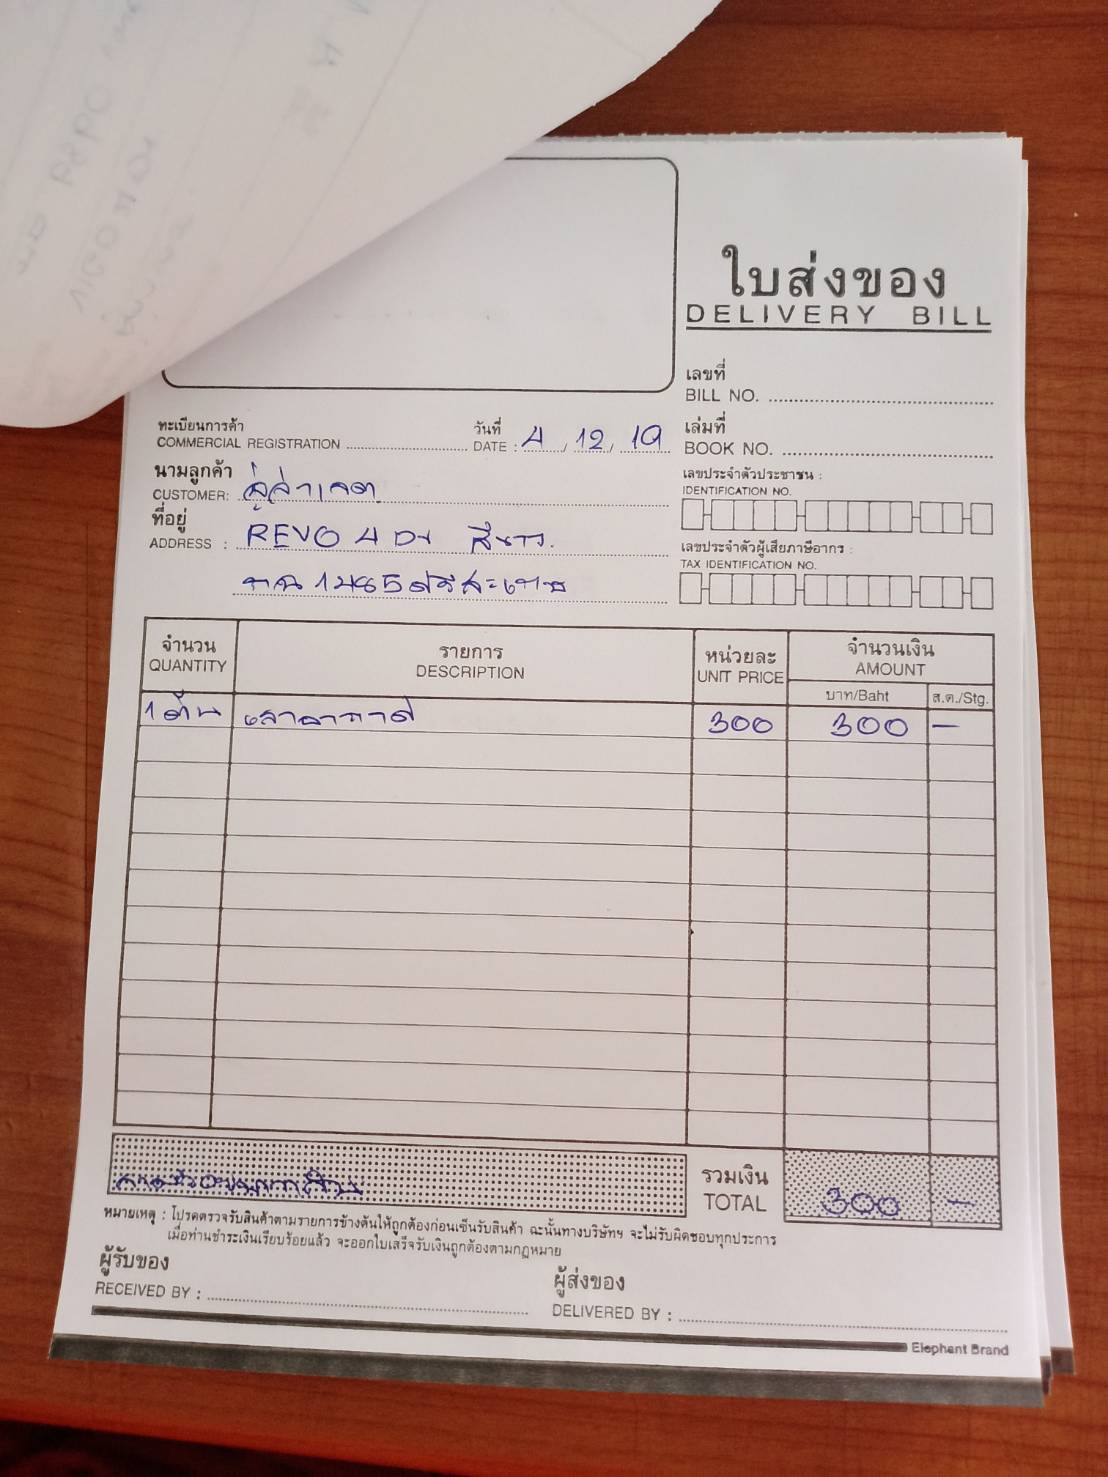 ใบส่งของ
DELIVERY BILL
เลขที่
BILL NO.
ทะเบียนการค้า
COMMERCIAL REGISTRATION
วันที่
DATE : 4 / 12 / 19
เล่มที่
BOOK NO.
นามลูกค้า
CUSTOMER:
เลขประจำตัวประชาชน :
IDENTIFICATION NO.
ที่อยู่
ADDRESS : REVO 4 สีขาว
เลขประจำตัวผู้เสียภาษีอากร :
TAX IDENTIFICATION NO.
ศรีสะเกษ
จำนวน
QUANTITY
รายการ
DESCRIPTION
หน่วยละ
UNIT PRICE
จำนวนเงิน
AMOUNT
บาท/Baht
ส.ต./Stg.
1 เสาอากาศ 300 300 —
รวมเงิน
TOTAL 300 —
หมายเหตุ : โปรดตรวจรับสินค้าตามรายการข้างต้นให้ถูกต้องก่อนเซ็นรับสินค้า ฉะนั้นทางบริษัทฯ จะไม่รับผิดชอบทุกประการ
เมื่อท่านชำระเงินเรียบร้อยแล้ว จะออกใบเสร็จรับเงินถูกต้องตามกฎหมาย
ผู้รับของ
RECEIVED BY :
ผู้ส่งของ
DELIVERED BY :
Elephant Brand